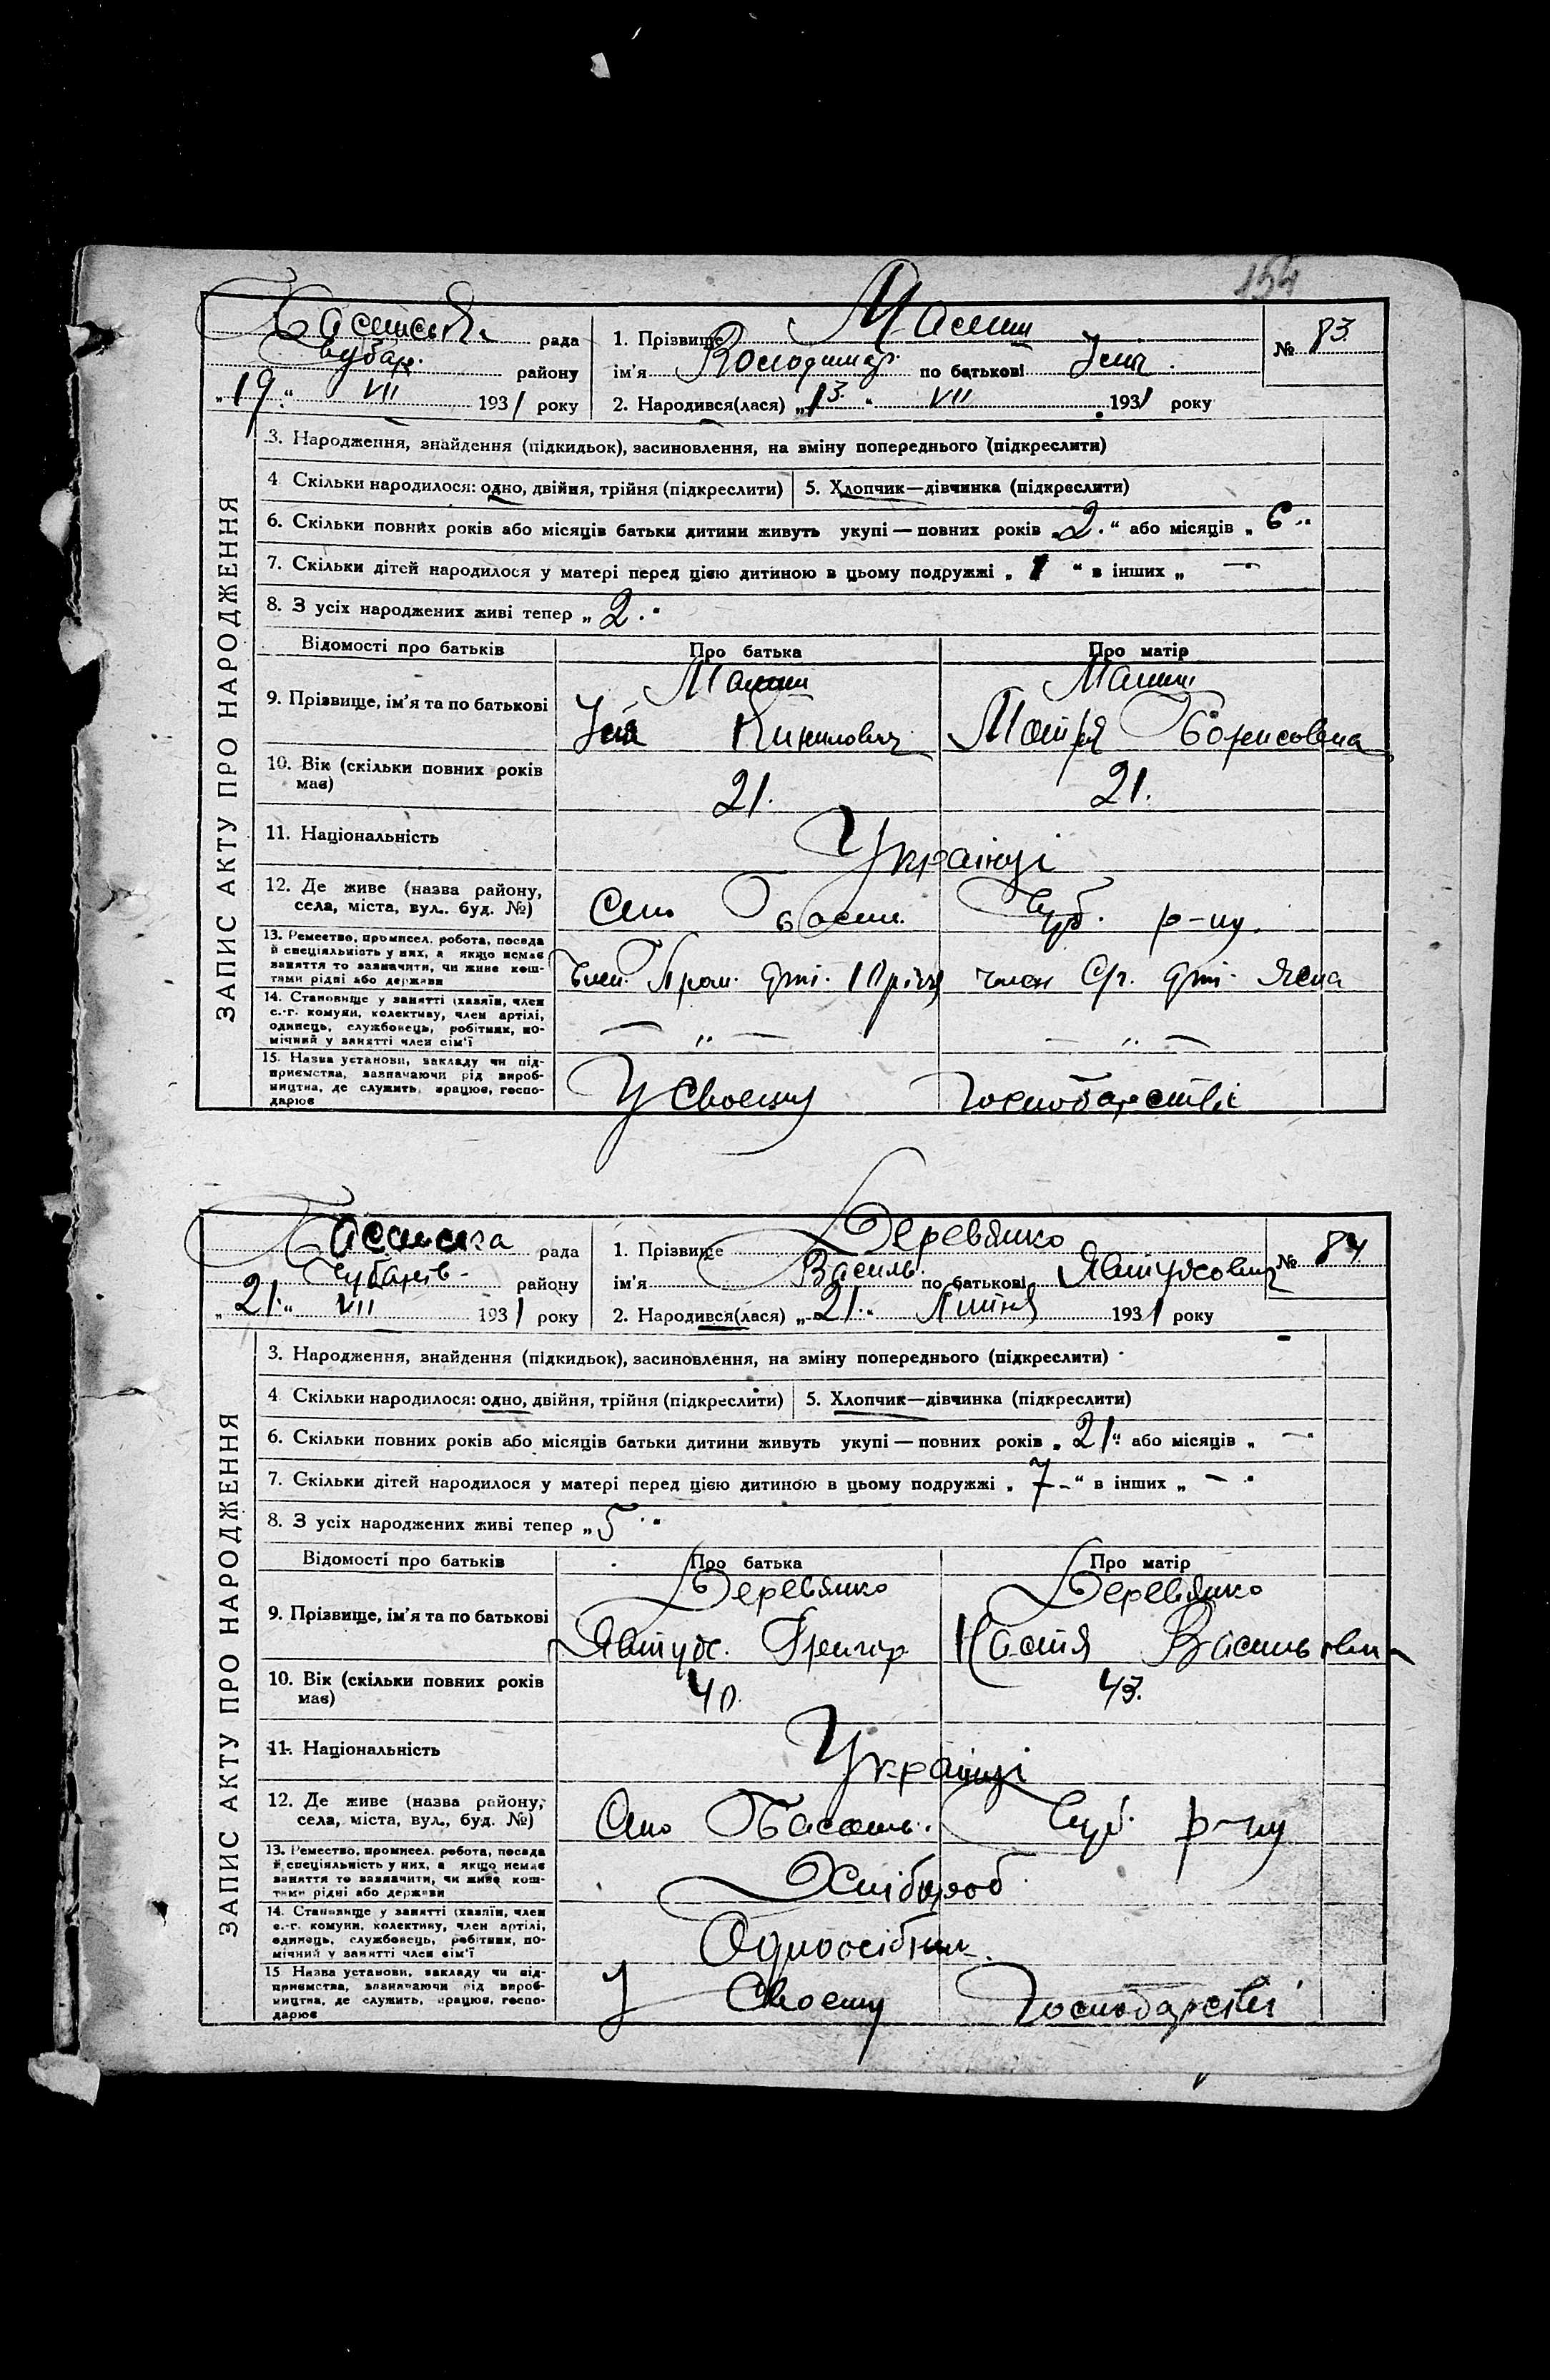 154
рада
району
„19“ VII 1931 року
1. Прізвище
ім'я Володимир по батькові
2. Народився(лася) „13“ VII 1931 року
№ 83
ЗАПИС АКТУ ПРО НАРОДЖЕННЯ
3. Народження, знайдення (підкидьок), засиновлення, на зміну попереднього (підкреслити)
4. Скільки народилося: одно, двійня, трійня (підкреслити) 5. Хлопчик—дівчинка (підкреслити)
6. Скільки повних років або місяців батьки дитини живуть укупі — повних років „2“ або місяців „6“
7. Скільки дітей народилося у матері перед цією дитиною в цьому подружжі „1“ в інших „—“
8. З усіх народжених живі тепер „2“
Відомості про батьків Про батька Про матір
9. Прізвище, ім'я та по батькові
Борисовна
10. Вік (скільки повних років має) 21. 21.
11. Національність Українці
12. Де живе (назва району, села, міста, вул. буд. №) Село Чуб. р-ну
13. Ремество, промисел, робота, посада й спеціяльність у них, а якщо немає заняття то зазначити, чи живе коштами рідні або держави
14. Становище у занятті (хазяїн, член с.-г. комуни, колективу, член артілі, одинець, службовець, робітник, помічний у занятті член сім'ї — „ — — „ —
15. Назва установи, закладу чи підприємства, зазначаючи рід виробництва, де служить, працює, господарює У своєму господарстві
рада
району
„21“ VII 1931 року
1. Прізвище Деревянко
ім'я Василь по батькові Явтухович
2. Народився(лася) „21“ Липня 1931 року
№ 84
ЗАПИС АКТУ ПРО НАРОДЖЕННЯ
3. Народження, знайдення (підкидьок), засиновлення, на зміну попереднього (підкреслити)
4. Скільки народилося: одно, двійня, трійня (підкреслити) 5. Хлопчик—дівчинка (підкреслити)
6. Скільки повних років або місяців батьки дитини живуть укупі — повних років „21“ або місяців „—“
7. Скільки дітей народилося у матері перед цією дитиною в цьому подружжі „7“ в інших „—“
8. З усіх народжених живі тепер „5“
Відомості про батьків Про батька Про матір
Деревянко Деревянко
9. Прізвище, ім'я та по батькові
Явтух. Григор Настя Васильовна
10. Вік (скільки повних років має) 40. 43.
11. Національність Українці
12. Де живе (назва району, села, міста, вул., буд. №) Село Обасань. Чуб. р-ну
13. Ремество, промисел, робота, посада й спеціяльність у них, а якщо немає заняття то зазначити, чи живе коштами рідні або держави Хлібороб
14. Становище у занятті (хазяїн, член с.-г. комуни, колективу, член артілі, одинець, службовець, робітник, помічний у занятті член сім'ї Одноосібник
15. Назва установи, закладу чи підприємства, зазначаючи рід виробництва, де служить, працює, господарює У своєму господарстві